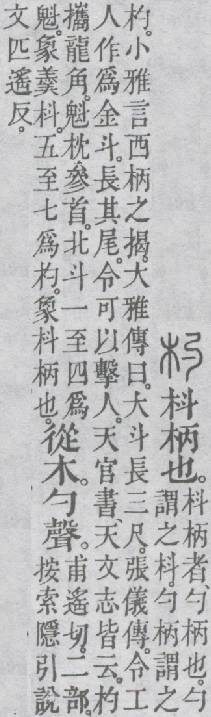 杓枓柄也。
枓柄者、勺柄也。勺
謂之枓。勺柄謂之
杓。小雅言西柄之揭。大雅傳曰。大斗長三尺。張儀傳。令工
人作爲金斗。長其尾。令可以擊人。天官書、天文志皆云。杓
攜龍角。魁枕參首。北斗一至四爲
魁。象羹枓。五至七爲杓。象枓柄也。
從木。勺聲。
甫遙切。二部。
按索隱引說
文匹遙反。